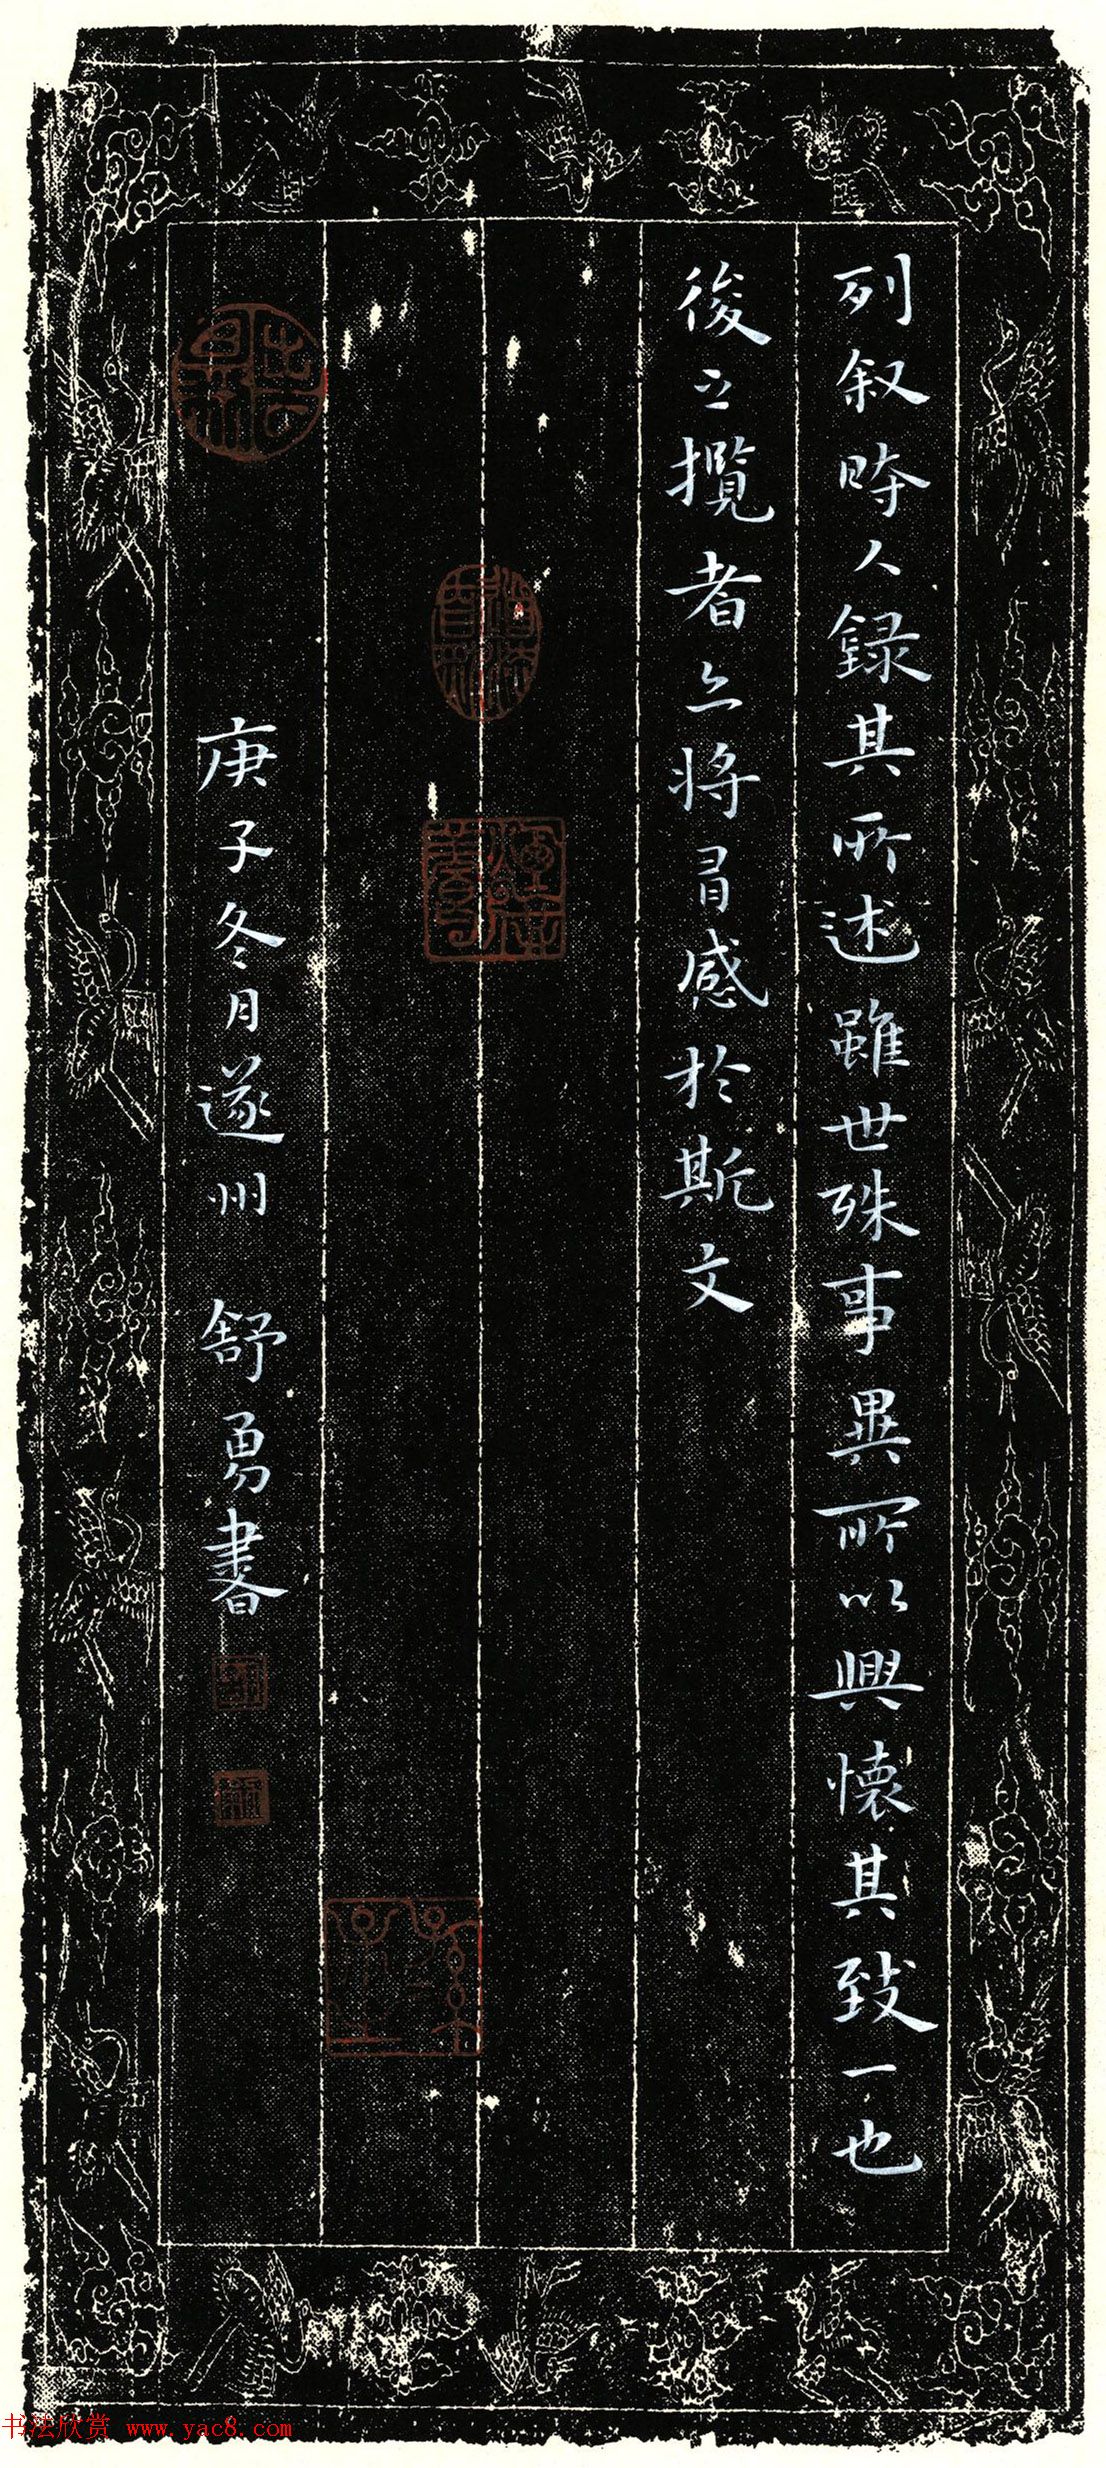 列叙時人録其所述雖世殊事異所以興懷其致一也
後之攬者亦將有感於斯文
庚子冬月遂州 舒勇書
书法欣赏 www.yac8.com